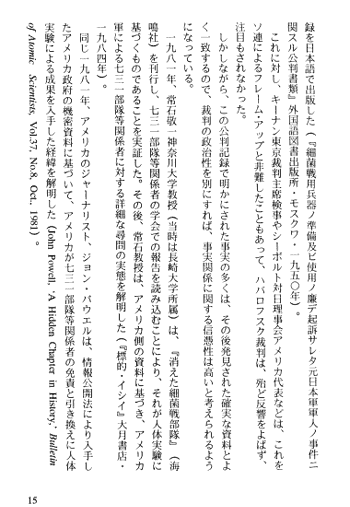 録を日本語で出版した（『細菌戦用兵器ノ準備及ビ使用ノ廉デ起訴サレタ元日本軍軍人ノ事件ニ
関スル公判書類』外国語図書出版所・モスクワ・一九五〇年）。
　これに対し、キーナン東京裁判主席検事やシーボルト対日理事会アメリカ代表などは、これを
ソ連によるフレーム・アップと非難したこともあって、ハバロフスク裁判は、殆ど反響をよばず、
注目もされなかった。
　しかしながら、この公判記録で明かにされた事実の多くは、その後発見された確実な資料とよ
く一致するので、裁判の政治性を別にすれば、事実関係に関する信憑性は高いと考えられるよう
になっている。
　一九八一年、常石敬一神奈川大学教授（当時は長崎大学所属）は、『消えた細菌戦部隊』（海
鳴社）を刊行し、七三一部隊等関係者の学会での報告を読み込むことにより、それが人体実験に
基づくものであることを実証した。その後、常石教授は、アメリカ側の資料に基づき、アメリカ
軍による七三一部隊等関係者に対する詳細な尋問の実態を解明した（『標的・イシイ』大月書店・
一九八四年）。
　同じ一九八一年、アメリカのジャーナリスト、ジョン・パウエルは、情報公開法により入手し
たアメリカ政府の機密資料に基づいて、アメリカが七三一部隊等関係者の免責と引き換えに人体
実験による成果を入手した経緯を解明した（John Powell, 'A Hidden Chapter in History,' Bulletin
of Atomic Scientists, Vol.37, No.8, Oct., 1981）。
15